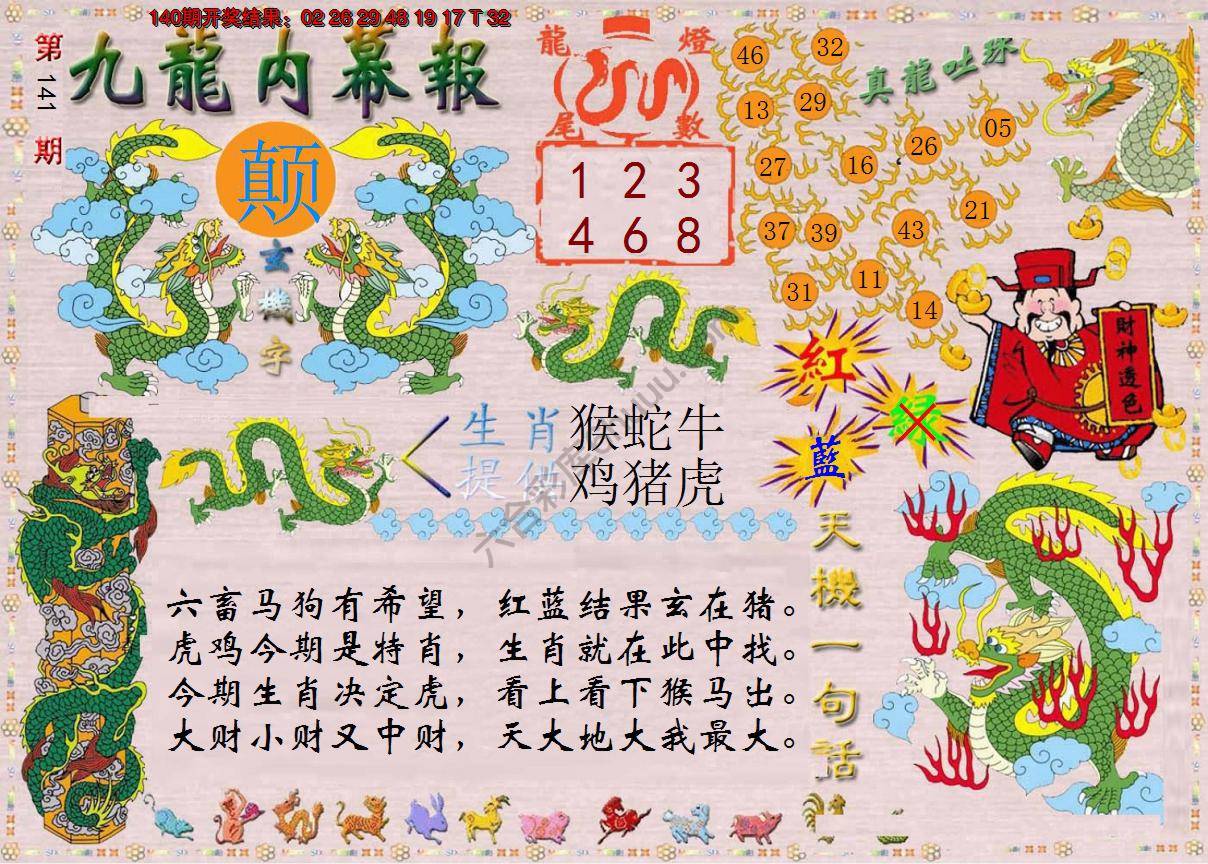 140期开奖结果：02 26 29 48 19 17 T 32
第141期
九龍內幕報
颠
玄機字
龍燈
尾數
1 2 3
4 6 8
真龍吐珠
46
32
13
29
27
16
26
05
37
39
43
21
31
11
14
財神透色
紅
綠
藍
生肖提供
猴蛇牛
鸡猪虎
天機一句話
六畜马狗有希望，红蓝结果玄在猪。
虎鸡今期是特肖，生肖就在此中找。
今期生肖决定虎，看上看下猴马出。
大财小财又中财，天大地大我最大。